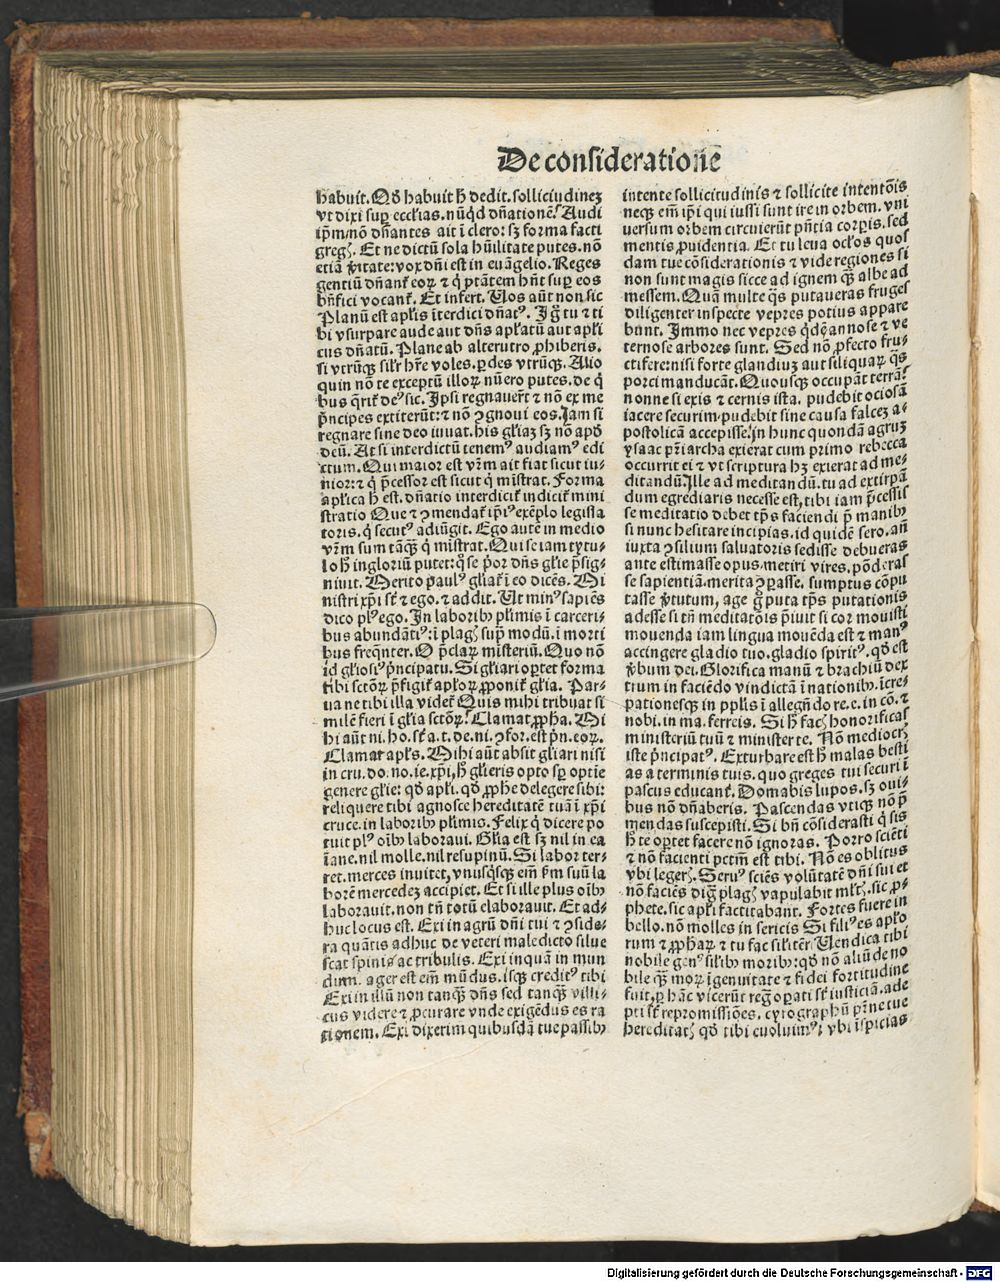 De consideratione
habuit. Qđ habuit h̄ dedit. solliciudineꝫ
vt dixi sup̱ eccl̄ias. nūq̇d dn̄ationē? Audi
ip̄m/nō dn̄antes ait ī clero: sꝫ forma facti
gregꝭ. Et ne dictū sola hūilitate putes. nō
etiā v̓itate: vox dn̄i est in euāgelio. Reges
gentiū dn̄ant̉ eoꝝ ⁊ q̇ ptātem hn̄t sup̱ eos
bn̄fici vocant̉. Et infert. Uos aūt non sic
Planū est ap̄lis īterdici dn̄atꝰ. Ig̊ tu ⁊ ti
bi vsurpare aude aut dn̄s ap̄latū aut ap̄li
cus dn̄atū. Plane ab alterutro ꝓhiberis.
si vtrūqꝫ sil̄r hr̄e voles. ꝑdes vtrūqꝫ. Alio
quin nō te exceptū illoꝝ nūero putes. de q̇
bus q̄rit̉ deꝰ sic. Ip̄si regnauer̄t ⁊ nō ex me
p̓ncipes extiterūt: ⁊ nō ꝯgnoui eos. Jam si
regnare sine deo iuuat. his gl̄iaꝫ sꝫ nō apđ
deū. At si interdictū tenemꝰ audiamꝰ edi
ctum. Qui maior est vr̄m ait fiat sicut iu⸗
nior: ⁊ q̇ p̄cessor est sicut q̇ mīstrat. Forma
ap̄lica h̄ est. dn̄atio interdicit̉ indicit̉ mini
stratio Que ⁊ ꝯmendat̉ ip̄iꝰ exēplo legisla
toris. q̇ secutꝰ adiūgit. Ego autē in medio
vr̄m sum tāqꝫ q̇ mīstrat. Qui se iam tytu⸗
lo h̄ ingloriū putet: q̊ se p̓or dn̄s gl̄ie p̄sig⸗
niuit. Merito paulꝰ gl̄iat̉ ī eo dicēs. Mi
nistri xp̄i st̄ ⁊ ego. ⁊ addit. Ut minꝰ sapiēs
dico plꝰ ego. In laboribꝰ pl̓imis ī carceri⸗
bus abundātiꝰ: ī plagꝭ sup̱ modū. ī morti
bus freq̄nter. O p̄claꝝ misteriū. Quo nō
id gl̄iosiꝰ p̓ncipatu. Si gl̄iari oꝑtet forma
tibi sctōꝝ p̄figit̉ ap̄loꝝ ꝓponit̉ gl̄ia. Par⸗
ua ne tibi illa videt̉ Quis mihi tribuat si
milē fieri ī gl̄ia sctōꝝ? Clamat ꝓp̄ha. Mi
hi aūt ni. ho. st̄ a. t. de. ni. ꝯfor. est p̓n. eoꝝ.
Clamat ap̄ls. Mihi aūt absit gl̄iari nisi
in cru. do. no. ie. xp̄i, h̄ gl̄ieris opto sp̱ optīe
genere gl̄ie: qđ ap̄li. qđ ꝓp̄he delegere sibi:
reliquere tibi agnosce hereditatē tuā ī xp̄i
cruce. in laboribꝰ pl̓imis. Felix q̇ dicere po
tuit plꝰ oībꝰ laboraui. Gl̄ia est sꝫ nil in ea
īane. nil molle. nil resupinū. Si labor ter⸗
ret. merces inuitet, vnusq̇sqꝫ em̄ ẜm suū la
borē mercedeꝫ accipiet. Et si ille plus oībꝰ
laborauit. non tn̄ totū elaborauit. Et ad⸗
huc locus est. Exi in agrū dn̄i tui ⁊ ꝯside⸗
ra quātis adhuc de veteri maledicto silue
scat spinis ac tribulis. Exi inquā in mun
dum. ager est em̄ mūdus. isqꝫ creditꝰ tibi
Exi in illū non tanqꝫ dn̄s sed tanqꝫ villi⸗
cus videre ⁊ ꝓcurare vnde exigēdus es ra
tionem. Exi dixerim quibusdā tue passibꝰ
intente sollicitudinis ⁊ sollicite intentōis
neqꝫ em̄ ip̄i qui iussi sunt ire in orbem. vni
uersum orbem circuierūt pn̄tia corꝑis. sed
mentis ꝓuidentia. Et tu leua ocl̓os quos
dam tue cōsiderationis ⁊ vide regiones si
non sunt magis sicce ad ignem qꝫ albe ad
messem. Quā multe q̄s putaueras fruges
diligenter inspecte vepres potius appare
bunt. Immo nec vepres q̇dē annose ⁊ ve
ternose arbores sunt. Sed nō ꝓfecto fru⸗
ctifere: nisi forte glandiuꝫ aut siliquaꝝ q̄s
porci manducāt. Quousqꝫ occupāt terrā?
nonne si exis ⁊ cernis ista. pudebit ociosā
iacere securim. pudebit sine causa falceꝫ a⸗
postolicā accepisse. in hunc quondā agruꝫ
ysaac pr̄iarcha exierat cum primo rebecca
occurrit ei ⁊ vt scriptura hꝫ exierat ad me⸗
ditandū. Ille ad meditandū. tu ad extirpā
dum egrediaris necesse est, tibi iam p̄cessis
se meditatio debet tp̄s faciendi p̄ manibꝰ
si nunc hesitare incipias. id quidē sero. an̄
iuxta ꝯsilium saluatoris sedisse debueras
ante estimasse opus. metiri vires. pōderas
se sapientiā. merita ꝯꝑasse, sumptus cōpu
tasse v̓tutum, age g̊ puta tp̄s putationis
adesse si tn̄ meditatōis p̓iuit si cor mouisti
mouenda iam lingua mouēda est ⁊ manꝰ
accingere gladio tuo. gladio spiritꝰ. qđ est
v̓bum dei. Glorifica manū ⁊ brachiū dex
trum in faciēdo vindictā ī nationibꝰ. īcre⸗
pationesqꝫ in pplīs ī allegn̄do re. e. in cō. ⁊
nobi. in ma. ferreis. Si h̄ facꝭ honorificas
ministeriū tuū ⁊ minister te. Nō mediocrꝭ
iste p̓ncipatꝰ. Exturbare est h̄ malas besti
as a terminis tuis. quo greges tui securi ī
pascus educant̉. Domabis lupos. sꝫ oui⸗
bus nō dn̄aberis. Pascendas vtiqꝫ nō p̓
mendas suscepisti. Si bn̄ cōsiderasti q̇ sis
h̄ te oꝑtet facere nō ignoras. Porro sciēti
⁊ nō facienti pctm̄ est tibi. Nō es oblitus
vbi legerꝭ. Seruꝰ sciēs volūtatē dn̄i sui et
nō faciēs dig̊ plagꝭ vapulabit ml̓tꝭ. sic ꝓ⸗
phete. sic ap̄li factitabant. Fortes fuere in
bello. nō molles in sericis Si filiꝰ es ap̄lo
rum ⁊ ꝓp̄haꝝ ⁊ tu fac sil̓iter. Uendica tibi
nobile genꝰ sil̓ibꝰ moribꝰ: qđ nō aliūde no
bile qꝫ moꝝ īgenuitate ⁊ fidei fortitudine
fuit, ꝑ hāc vicerūt reg̊ oꝑati st̄ iusticiā. ade
pti st̄ repromissiōes. cyrographū pr̄ne tue
hereditatꝭ qđ tibi euoluimꝰ: vbi īspicias
Digitalisierung gefördert durch die Deutsche Forschungsgemeinschaft - DFG